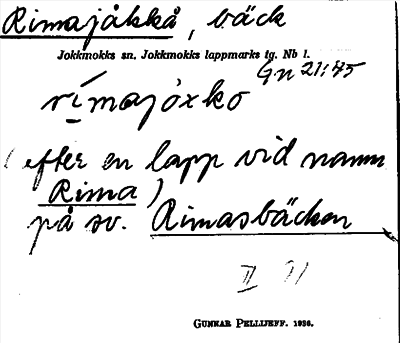 Rimajåkkå, bäck
Jokkmokks sn. Jokkmokks lappmarks tg. Nb l.
Gn 21:45
rímajóxko
(efter en lapp vid namn
Rima)
på sv. Rimasbäcken
II 91
GUNNAR PELLIJEFF. 1936.